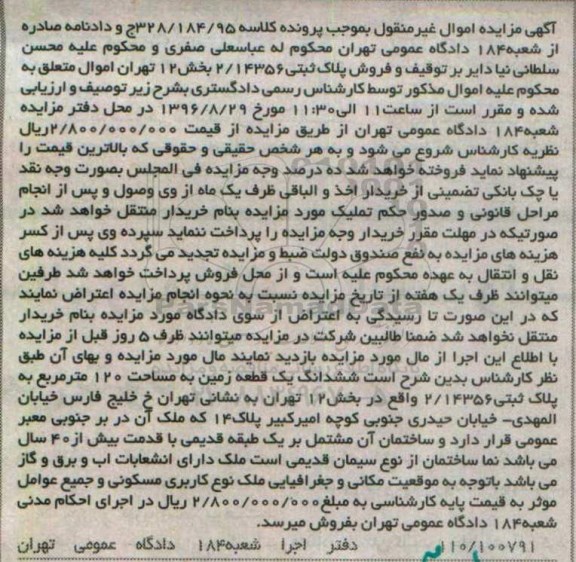 آگهی مزایده اموال غیر منقول بموجب پرونده کلاسه ۳۲۸/۱۸۴/۹۵ج و دادنامه صادره
از شعبه۱۸۴ دادگاه عمومی تهران محکوم له عباسعلی صفری و محکوم علیه محسن
سلطانی نیا دایر بر توقیف و فروش پلاک ثبتی ۲/۱۴۳۵۶ بخش۱۲ تهران اموال متعلق به
محکوم علیه اموال مذکور توسط کارشناس رسمی دادگستری بشرح زیر توصیف و ارزیابی
شده و مقرر است از ساعت۱۱ الی۱۱:۳۰ مورخ ۱۳۹۶/۸/۲۹ در محل دفتر مزایده
شعبه۱۸۴ دادگاه عمومی تهران از طریق مزایده از قیمت ۲/۸۰۰/۰۰۰/۰۰۰ریال
نظریه کارشناس شروع می شود و به هر شخص حقیقی و حقوقی که بالاترین قیمت را
پیشنهاد نماید فروخته خواهد شد ده درصد وجه مزایده فی المجلس بصورت وجه نقد
یا چک بانکی تضمینی از خریدار اخذ و الباقی ظرف یک ماه از وی وصول و پس از انجام
مراحل قانونی و صدور حکم تملیک مورد مزایده بنام خریدار منتقل خواهد شد در
صورتیکه در مهلت مقرر خریدار وجه مزایده را پرداخت ننماید سپرده وی پس از کسر
هزینه های مزایده به نفع صندوق دولت ضبط و مزایده تجدید می گردد کلیه هزینه های
نقل و انتقال به عهده محکوم علیه است و از محل فروش پرداخت خواهد شد طرفین
میتوانند ظرف یک هفته از تاریخ مزایده نسبت به نحوه انجام مزایده اعتراض نمایند
که در این صورت تا رسیدگی به اعتراض از سوی دادگاه مورد مزایده بنام خریدار
منتقل نخواهد شد ضمنا طالبین شرکت در مزایده میتوانند ظرف ۵ روز قبل از مزایده
با اطلاع این اجرا از مال مورد مزایده بازدید نمایند مال مورد مزایده و بهای آن طبق
نظر کارشناس بدین شرح است ششدانگ یک قطعه زمین به مساحت ۱۲۰ مترمربع به
پلاک ثبتی۲/۱۴۳۵۶ واقع در بخش۱۲ تهران به نشانی تهران خ خلیج فارس خیابان
المهدی- خیابان حیدری جنوبی کوچه امیرکبیر پلاک۱۴ که ملک آن در بر جنوبی معبر
عمومی قرار دارد و ساختمان آن مشتمل بر یک طبقه قدیمی با قدمت بیش از۴۰ سال
می باشد نما ساختمان از نوع سیمان قدیمی است ملک دارای انشعابات اب و برق و گاز
می باشد باتوجه به موقعیت مکانی و جغرافیایی ملک نوع کاربری مسکونی و جمیع عوامل
موثر به قیمت پایه کارشناسی به مبلغ۲/۸۰۰/۰۰۰/۰۰۰ ریال در اجرای احکام مدنی
شعبه۱۸۴ دادگاه عمومی تهران بفروش میرسد.
۱۱۰/۱۰۰۷۹۱ دفتر اجرا شعبه۱۸۴ دادگاه عمومی تهران